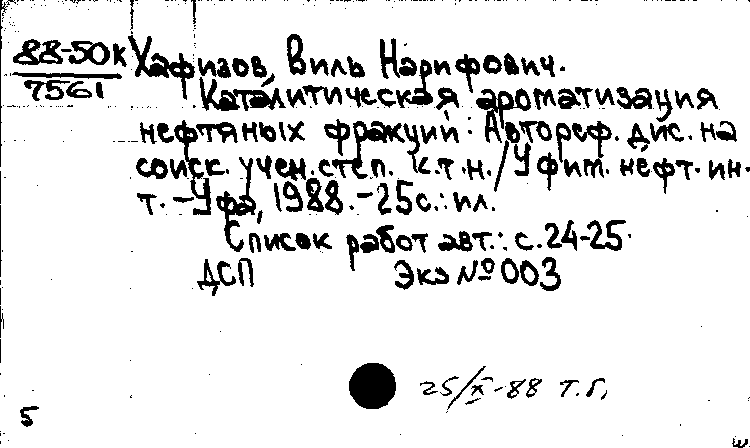 88-50к
7561
Хафизов, Виль Нарифович.
Каталитическая ароматизация
нефтяных фракций: Автореф. дис. на
соиск. учен. степ. к.т.н. / Уфим. нефт. ин-
т. - Уфа, 1988. - 25с.: ил.
Список работ авт.: с. 24-25.
ДСП Экз № 003
25/X-88 Т.Г.
5